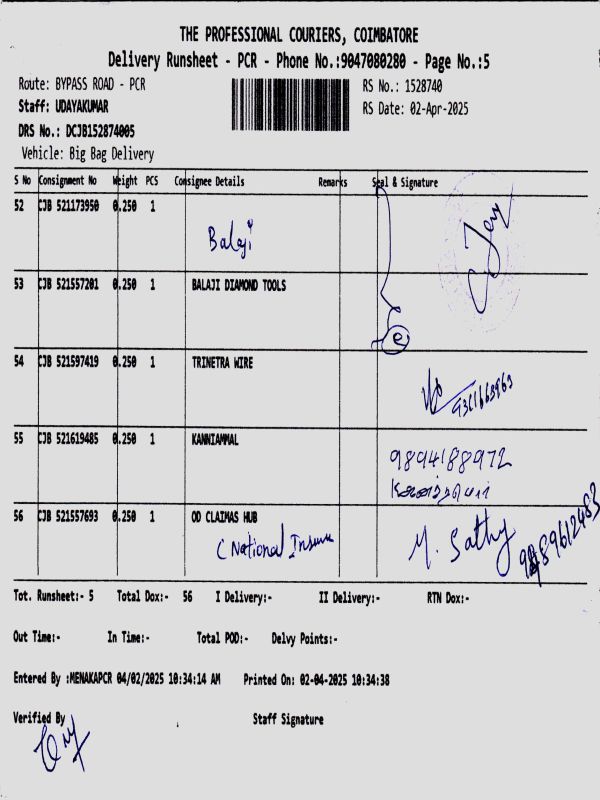 THE PROFESSIONAL COURIERS, COIMBATORE
Delivery Runsheet - PCR - Phone No.:9047080280 - Page No.:5
Route: BYPASS ROAD - PCR RS No.: 1528740
Staff: UDAYAKUMAR RS Date: 02-Apr-2025
DRS No.: DCJB152874005
Vehicle: Big Bag Delivery
S No Consignment No Weight PCS Consignee Details Remarks Seal & Signature
52 CJB 521173950 0.250 1
Balaji
53 CJB 521557201 0.250 1 BALAJI DIAMOND TOOLS
54 CJB 521597419 0.250 1 TRINETRA WIRE
55 CJB 521619485 0.250 1 KANNIAMMAL
9894188972
56 CJB 521557693 0.250 1 OD CLAIMAS HUB
( National Insura
M. Sathy
Tot. Runsheet:- 5 Total Dox:- 56 I Delivery:- II Delivery:- RTN Dox:-
Out Time:- In Time:- Total POD:- Delvy Points:-
Entered By :MENAKAPCR 04/02/2025 10:34:14 AM Printed On: 02-04-2025 10:34:38
Verified By Staff Signature